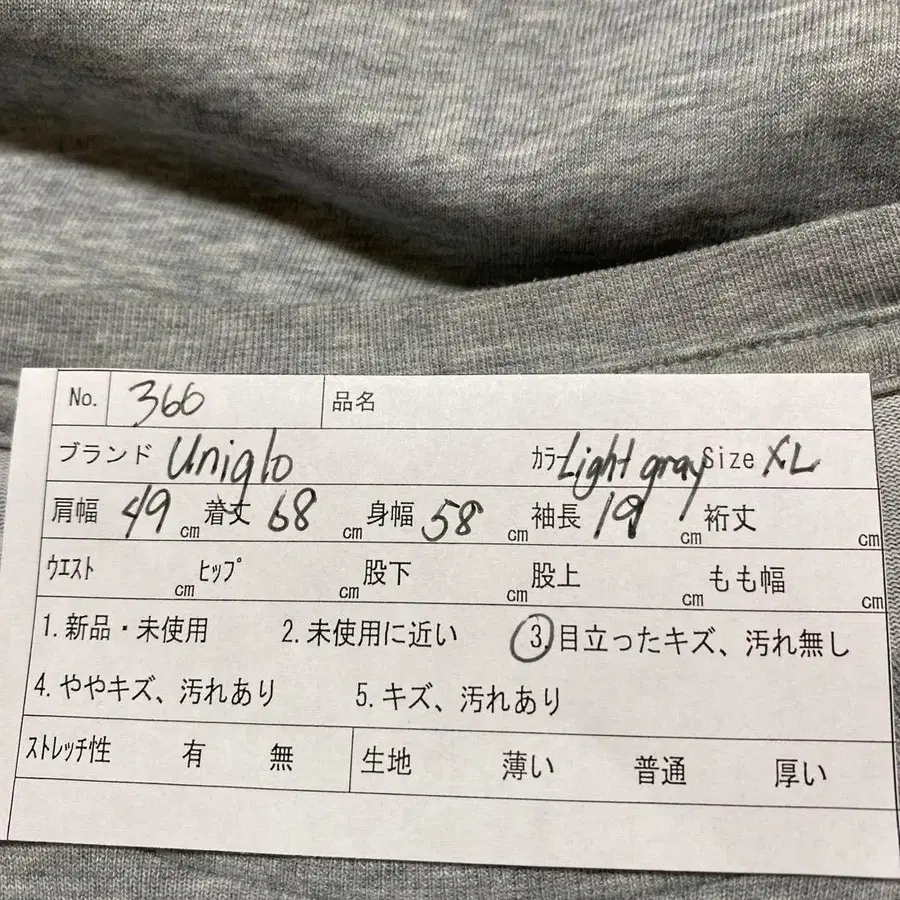 No. 366 品名
ブランド Uniglo カラー Light gray Size XL
肩幅 49 cm 着丈 68 cm 身幅 58 cm 袖長 19 cm 裄丈 cm
ウエスト cm ヒップ cm 股下 cm 股上 cm もも幅 cm
1.新品・未使用 2.未使用に近い 3.目立ったキズ、汚れ無し
4.ややキズ、汚れあり 5.キズ、汚れあり
ストレッチ性 有 無 生地 薄い 普通 厚い